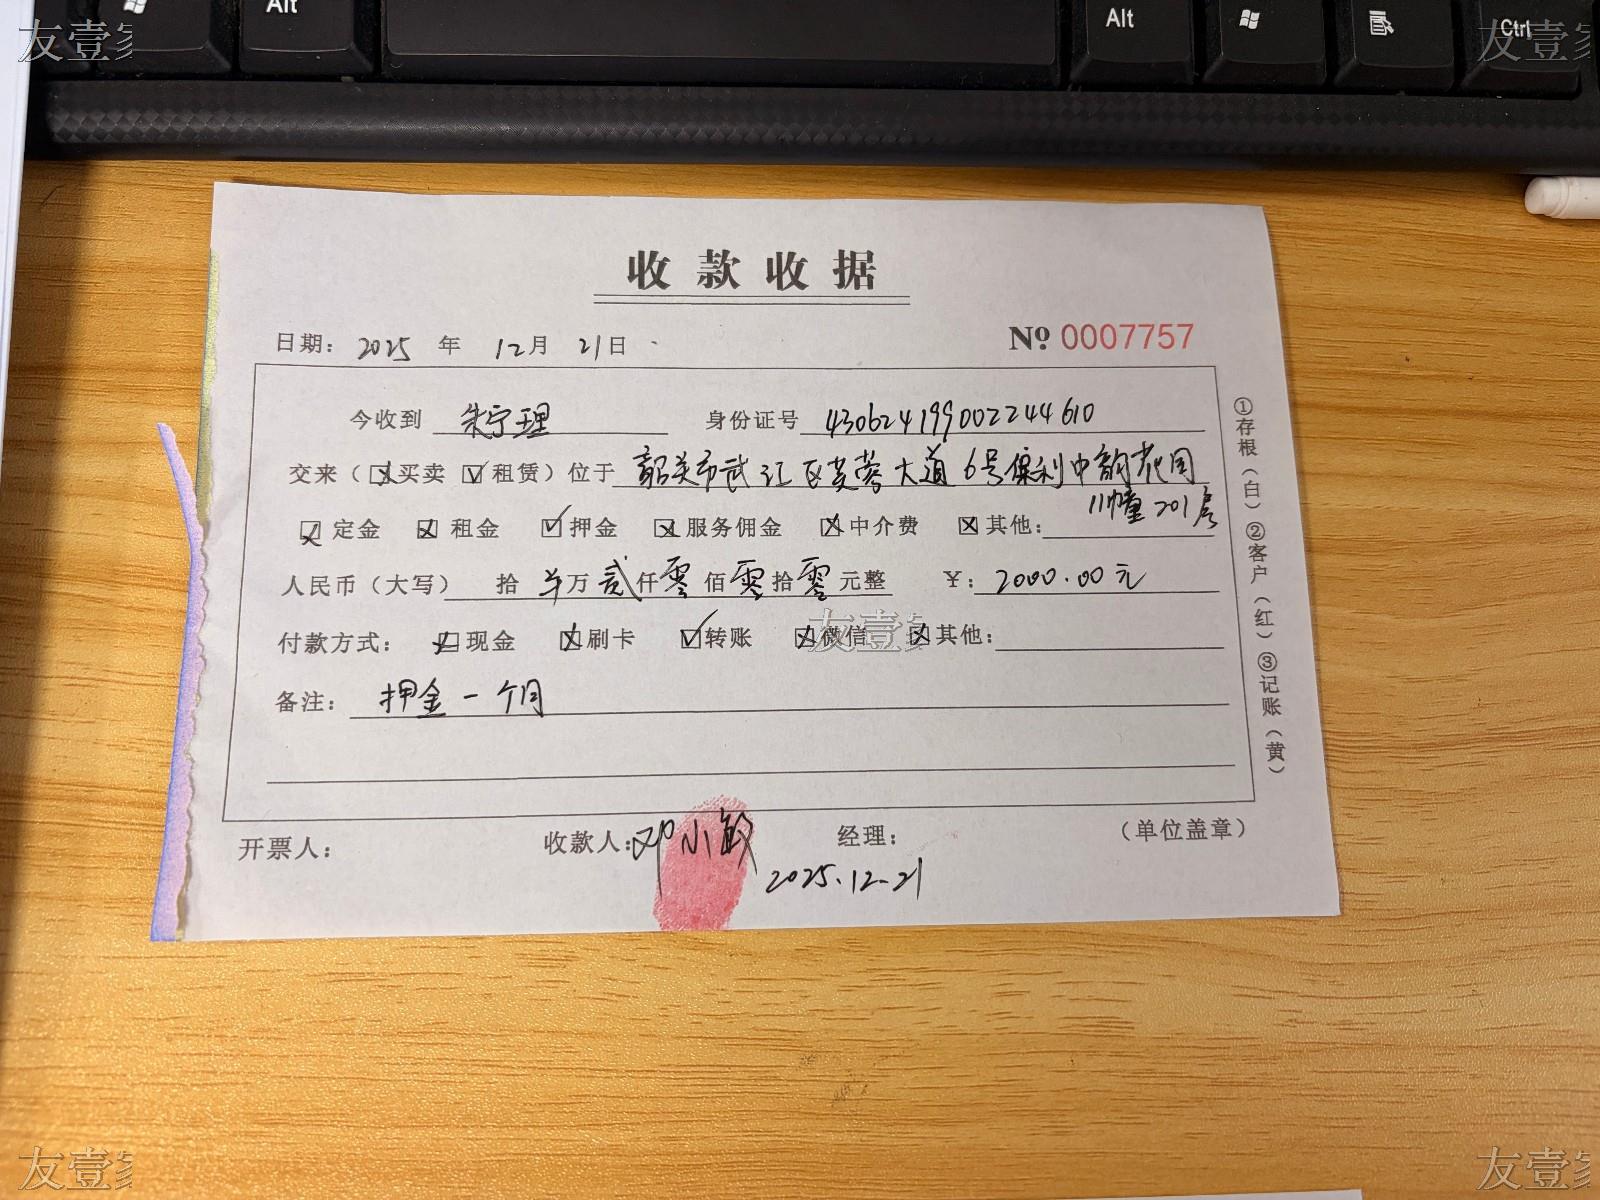 Alt
Alt
Ctrl
友壹家
友壹家
收款收据
日期： 2025 年 12月 21日
№ 0007757
今收到 朱宁理 身份证号 430624199002244610
交来（☒买卖 ☑租赁）位于 韶关市武江区芙蓉大道6号保利中韵花园
11幢201房
☒定金 ☒租金 ☑押金 ☒服务佣金 ☒中介费 ☒其他：
人民币（大写） 拾 万 贰仟零佰零拾零元整 ¥：2000.00元
付款方式： ☒现金 ☒刷卡 ☑转账 ☒微信 ☒其他：
友壹家
备注： 押金一个月
开票人： 收款人：邓小敏 经理： （单位盖章）
2025.12-21
①存根（白）②客户（红）③记账（黄）
友壹家
友壹家